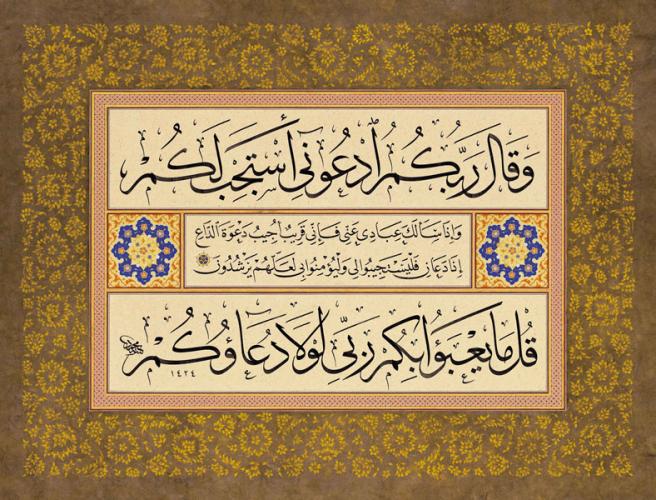 وَقَالَ رَبُّكُمُ ٱدْعُونِىٓ أَسْتَجِبْ لَكُمْ
وَإِذَا سَأَلَكَ عِبَادِى عَنِّى فَإِنِّى قَرِيبٌ أُجِيبُ دَعْوَةَ الدَّاعِ
إِذَا دَعَانِ فَلْيَسْتَجِيبُوا لِى وَلْيُؤْمِنُوا بِى لَعَلَّهُمْ يَرْشُدُونَ
قُلْ مَا يَعْبَؤُا بِكُمْ رَبِّى لَوْلَا دُعَاؤُكُمْ
١٤٣٤